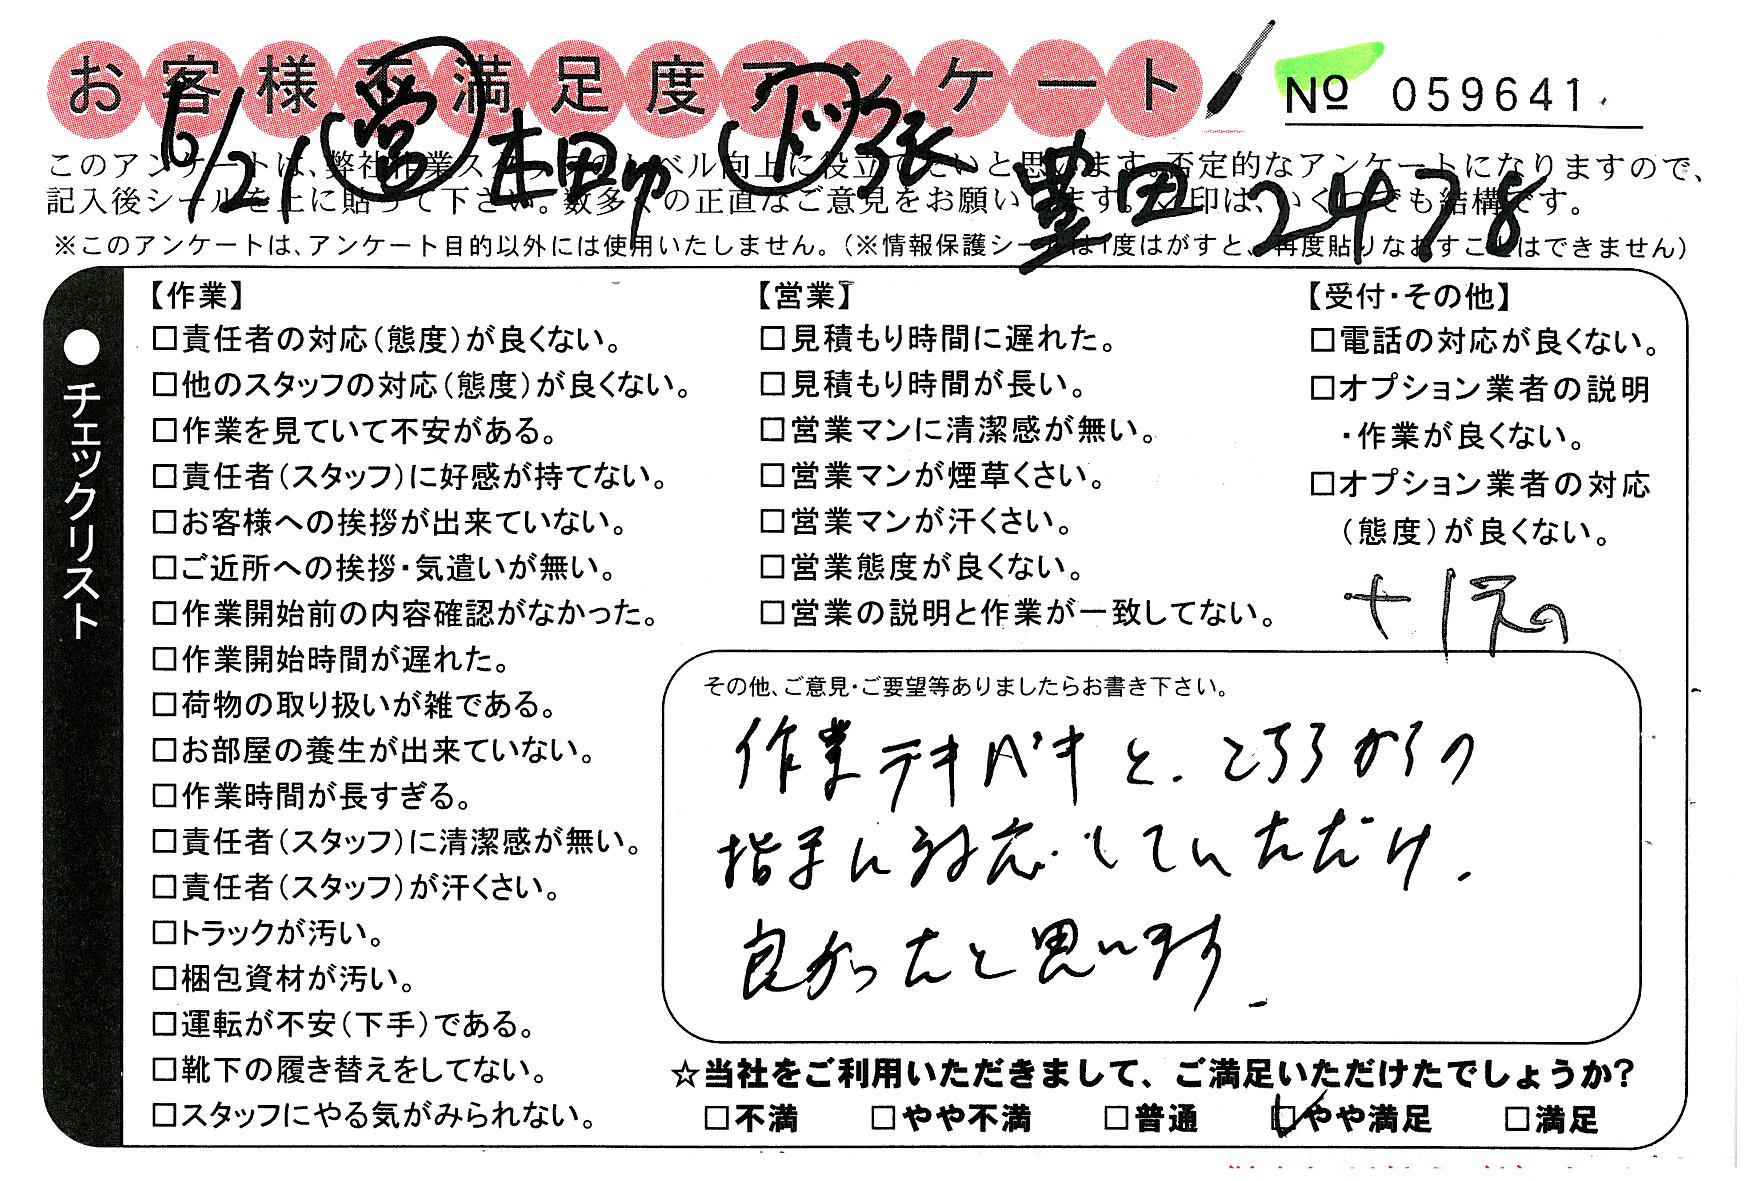 お客様不満足度アンケート
№ 059641
6/21 (営) 本田ゆ (ド) 張 豊田 2478
このアンケートは、弊社作業スタッフのレベル向上に役立てたいと思います。否定的なアンケートになりますので、
記入後シールを上に貼って下さい。数多くの正直なご意見をお願いします。✓印は、いくつでも結構です。
※このアンケートは、アンケート目的以外には使用いたしません。(※情報保護シールは1度はがすと、再度貼りなおすことはできません)
●チェックリスト
【作業】
□責任者の対応(態度)が良くない。
□他のスタッフの対応(態度)が良くない。
□作業を見ていて不安がある。
□責任者(スタッフ)に好感が持てない。
□お客様への挨拶が出来ていない。
□ご近所への挨拶・気遣いが無い。
□作業開始前の内容確認がなかった。
□作業開始時間が遅れた。
□荷物の取り扱いが雑である。
□お部屋の養生が出来ていない。
□作業時間が長すぎる。
□責任者(スタッフ)に清潔感が無い。
□責任者(スタッフ)が汗くさい。
□トラックが汚い。
□梱包資材が汚い。
□運転が不安(下手)である。
□靴下の履き替えをしてない。
□スタッフにやる気がみられない。
【営業】
□見積もり時間に遅れた。
□見積もり時間が長い。
□営業マンに清潔感が無い。
□営業マンが煙草くさい。
□営業マンが汗くさい。
□営業態度が良くない。
□営業の説明と作業が一致してない。
【受付・その他】
□電話の対応が良くない。
□オプション業者の説明
・作業が良くない。
□オプション業者の対応
(態度)が良くない。
その他、ご意見・ご要望等ありましたらお書き下さい。
作業テキパキと、こちらからの
指示に対応していただけ、
良かったと思います。
☆当社をご利用いただきまして、ご満足いただけたでしょうか?
□不満 □やや不満 □普通 ☑やや満足 □満足